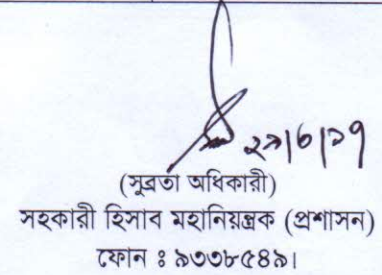 ২৯/৮/১৭
(সুব্রতা অধিকারী)
সহকারী হিসাব মহানিয়ন্ত্রক (প্রশাসন)
ফোন ঃ ৯৩৩৮৫৪৯।